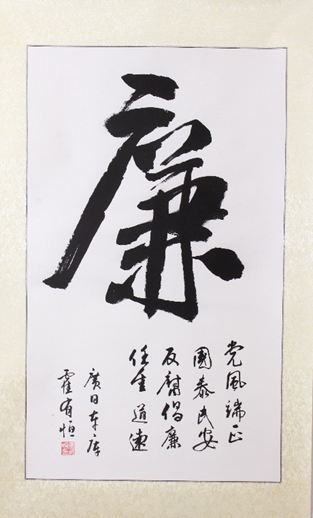 廉
党風端正
國泰民安
反腐倡廉
任重道遠
霍有恒